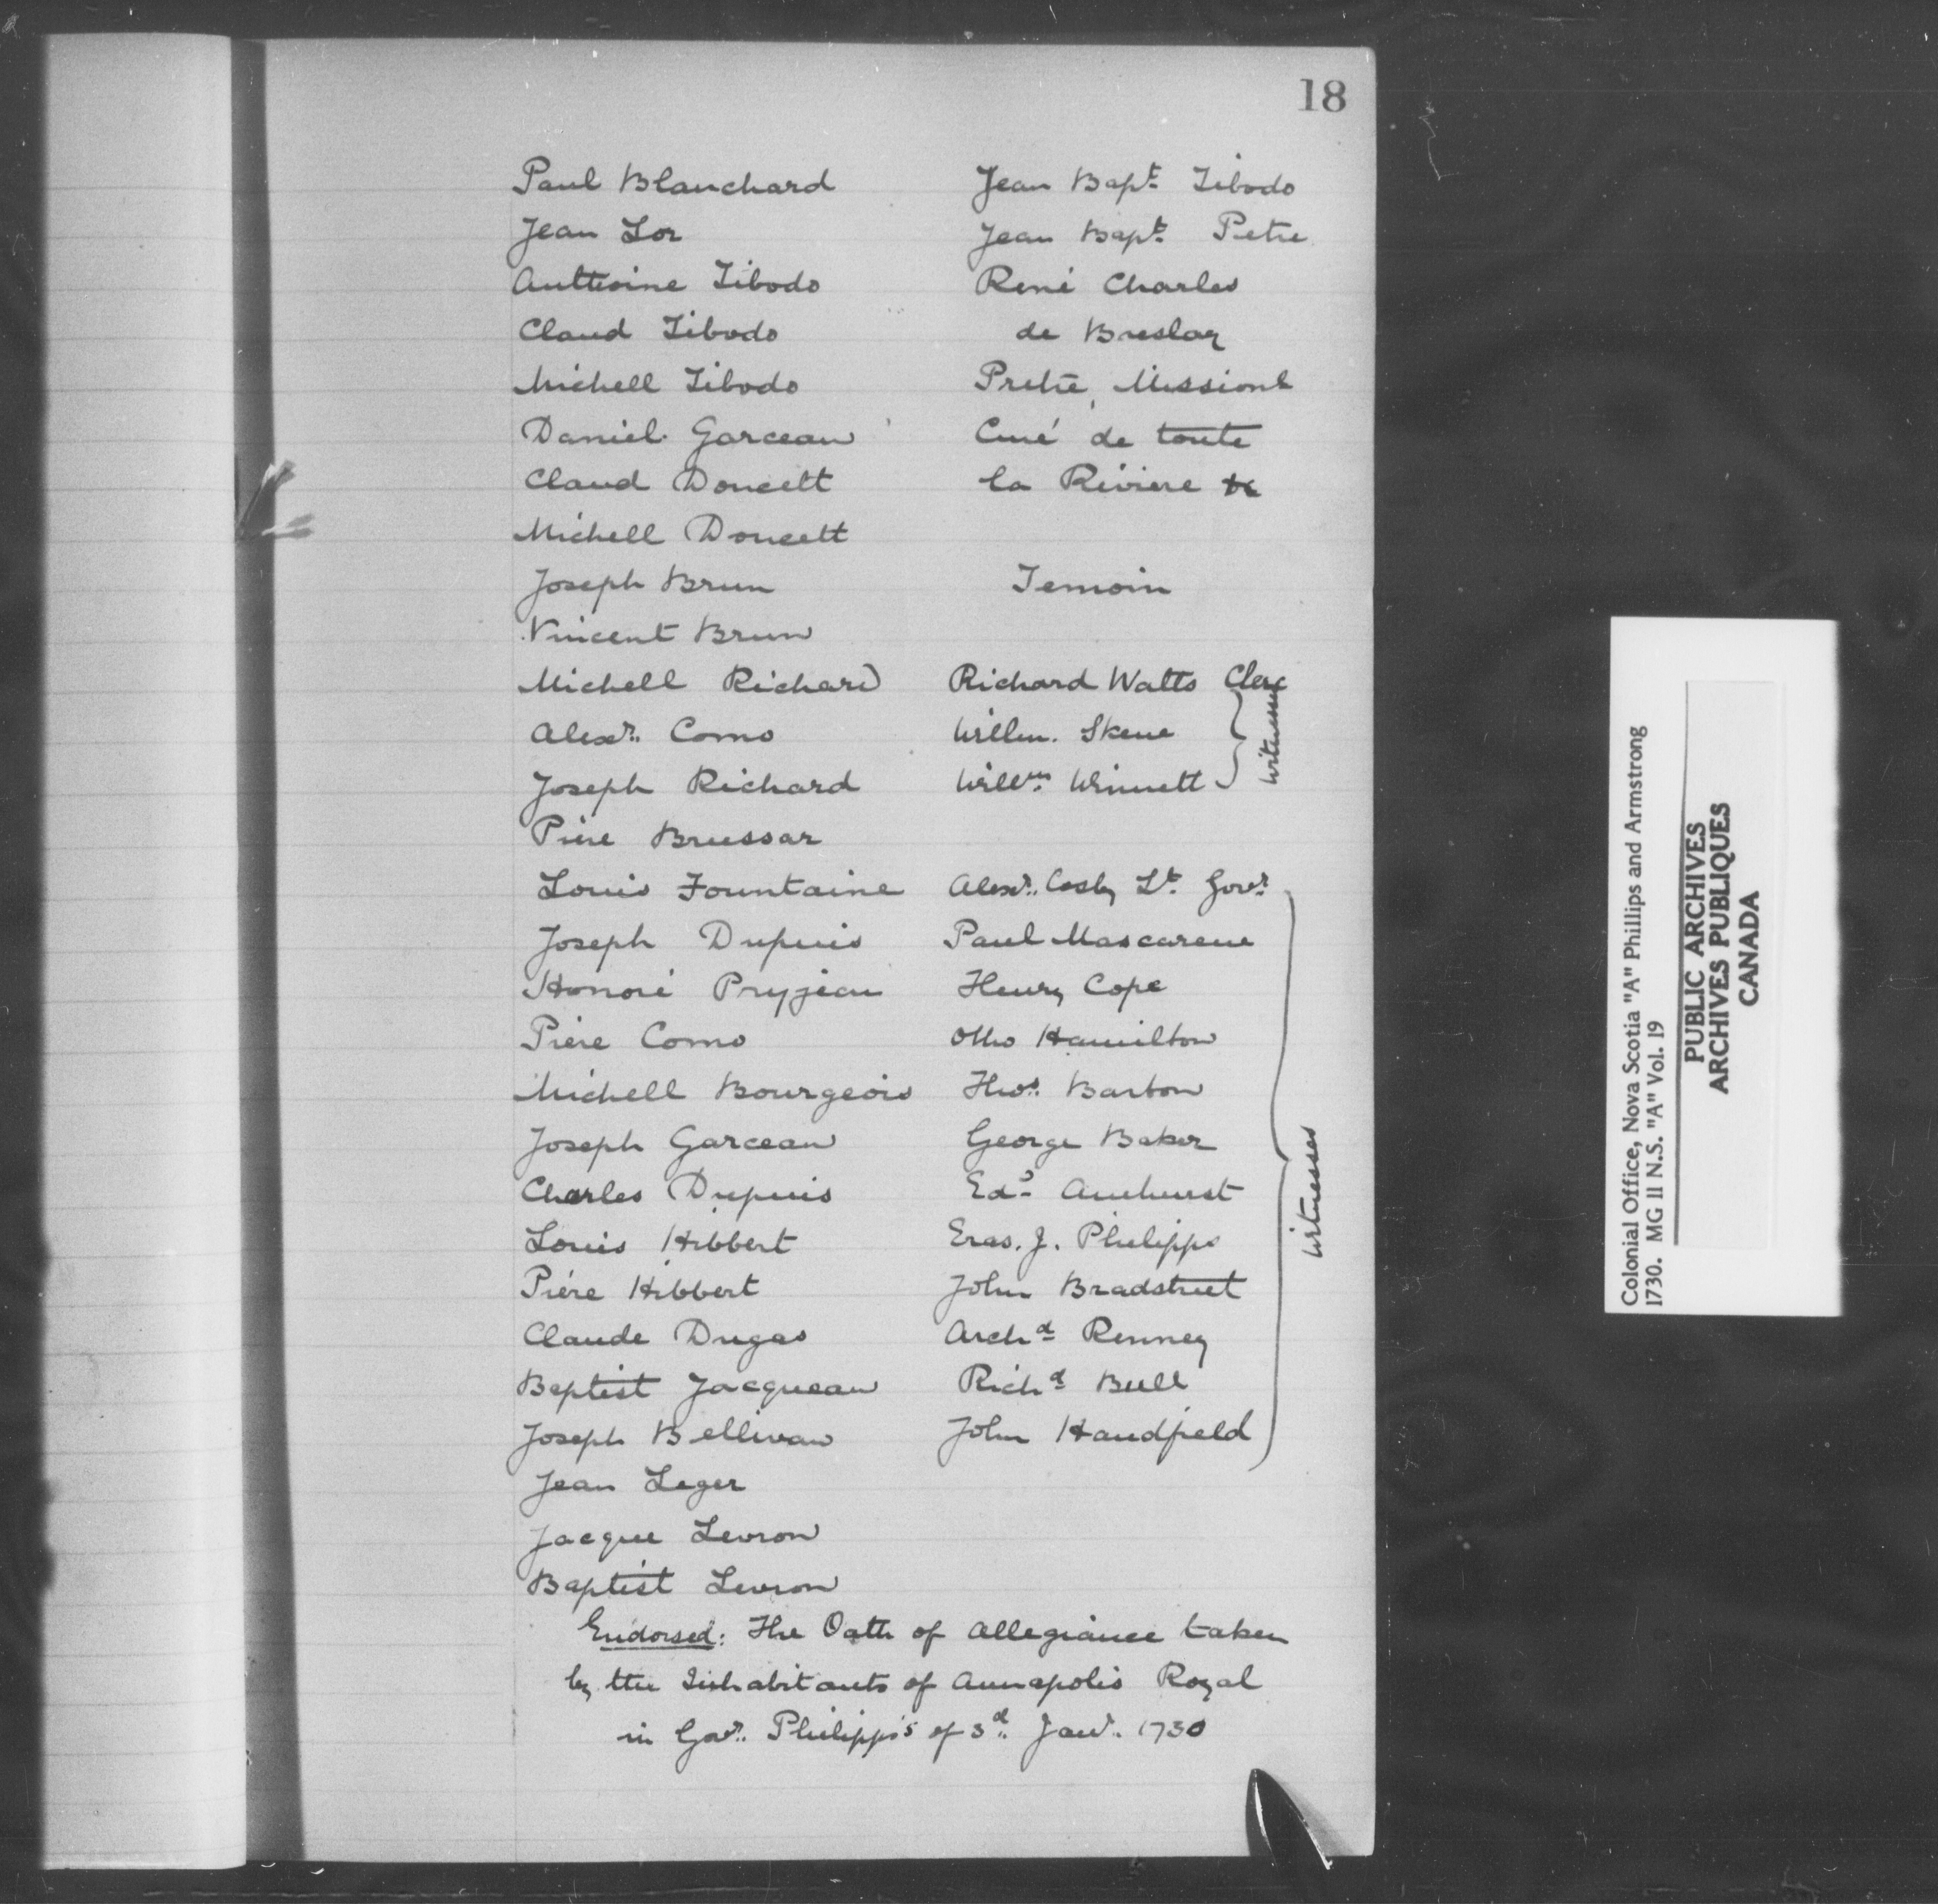 18
Paul Blanchard
Jean Lor
Anthoine Tibodo
Claud Tibodo
Michell Tibodo
Daniel Garceau
Claud Doucett
Michell Doucett
Joseph Brun
Vincent Brun
Michell Richard
Alexr. Como
Joseph Richard
Piere Brussar
Louis Fountaine
Joseph Dupuis
Honoré Pryjean
Piere Como
Michell Bourgeois
Joseph Garceau
Charles Dupuis
Louis Hibbert
Piére Hibbert
Claude Dugas
Baptist Jacqueau
Joseph Bellivau
Jean Leger
Jacque Levron
Baptist Levron
Jean Bapt. Tibodo
Jean Bapt. Petre
René Charles
de Breslay
Pretre, Missionl
Curé de toute
la Riviere &c
Temoin
Richard Watts Clerc
Willm. Skene
Willm. Winnett
Witnesses
Alexr. Cosby Lt. Govr.
Paul Mascarene
Henry Cope
Otho Hamilton
Thos. Barton
George Baker
Edd. Amhurst
Eras. J. Philipps
John Bradstreet
Archd. Renney
Richd. Bull
John Handfield
Witnesses
Endorsed: The Oath of Allegiance taken
by the Inhabitants of Annapolis Royal
in Govr. Philipps's of 3d. Janr. 1730
Colonial Office, Nova Scotia "A" Phillips and Armstrong
1730. MG 11 N.S. "A" Vol. 19
PUBLIC ARCHIVES
ARCHIVES PUBLIQUES
CANADA